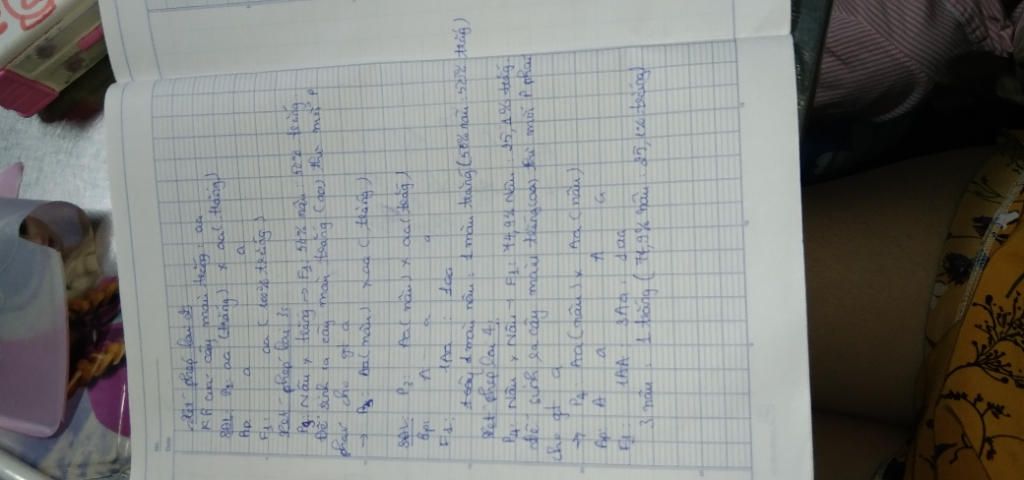 Xét phép lai 2:
KH của cây màu trắng: aa
SĐL: P2 aa (trắng) x aa (trắng)
Gp a a
F1: aa (100% trắng)
Xét phép lai 3:
P3 Nâu x trắng → F1: 50% nâu : 50% trắng
Để sinh ra cây màu trắng (aa) thì mỗi P
phải cho gt a
→ P3 Aa (nâu) x aa (trắng)
SĐL: P3: Aa (nâu) x aa (trắng)
Gp: A a a
F1: 1Aa : 1aa
1 màu nâu : 1 màu trắng (50% nâu : 50% trắng)
Xét phép lai 4:
P4: Nâu x Nâu → F1: 74,9% Nâu : 25,1% trắng
Để sinh ra cây màu trắng (aa) thì mỗi P phải
cho gt a
→ P4: Aa (nâu) x Aa (nâu)
Gp: A a A a
F1: 1AA : 2Aa : 1aa
3 nâu : 1 trắng (74,9% nâu : 25,1% trắng)